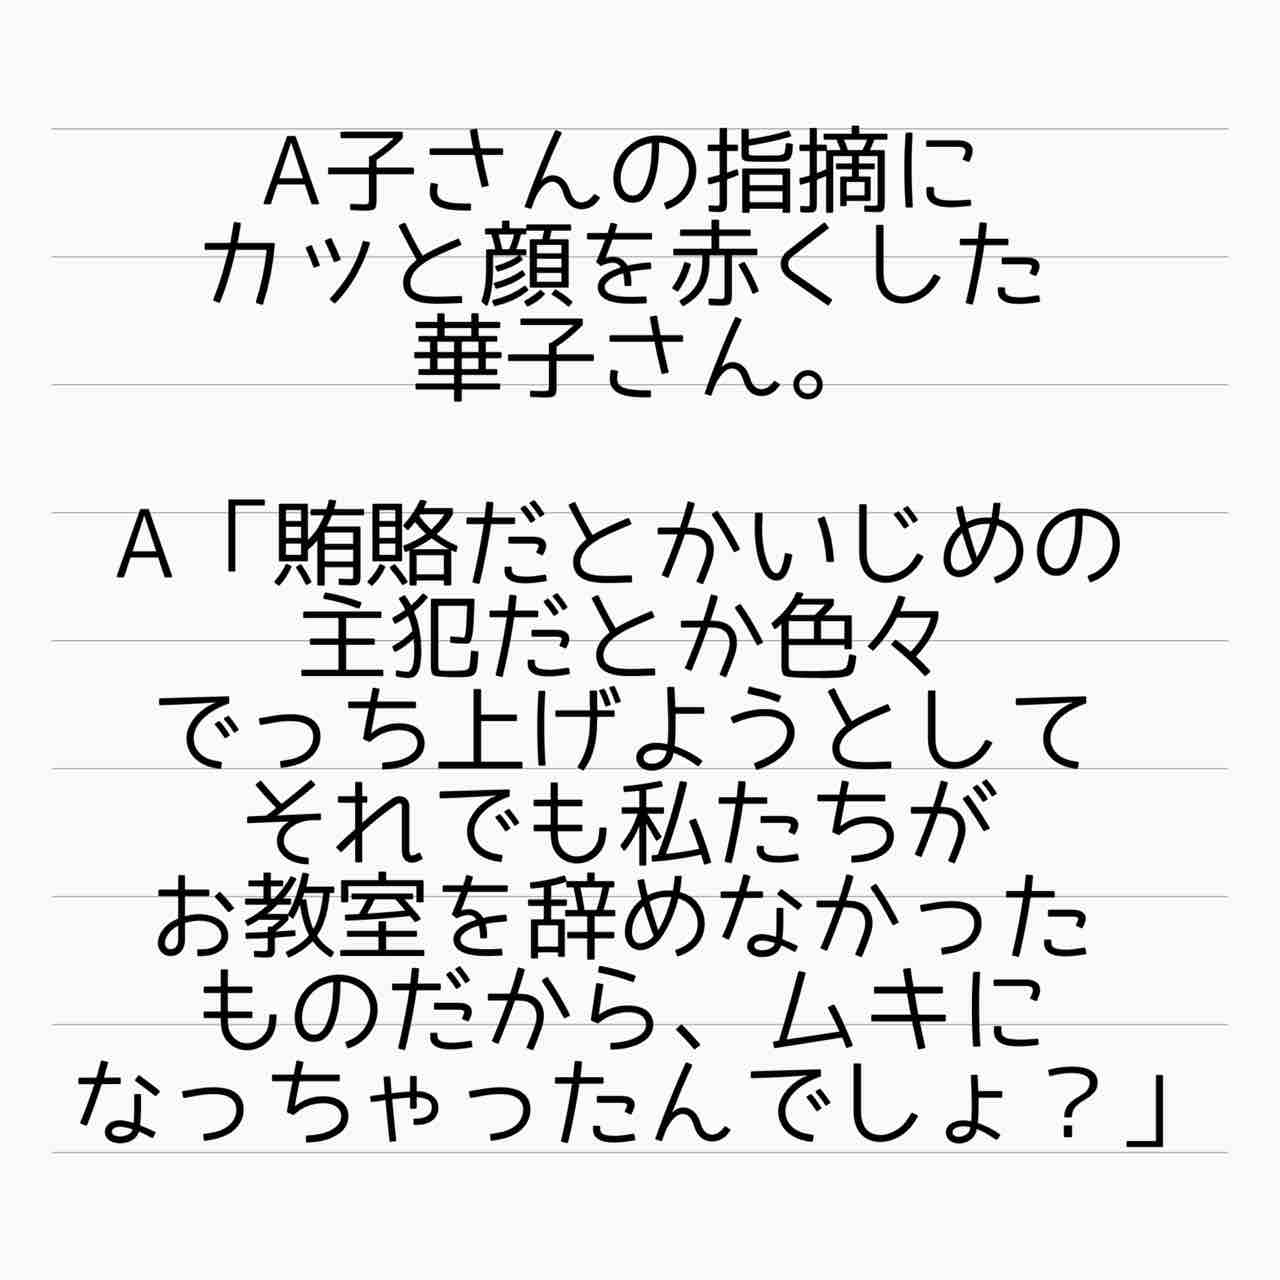 A子さんの指摘に
カッと顔を赤くした
華子さん。
A「賄賂だとかいじめの
主犯だとか色々
でっち上げようとして
それでも私たちが
お教室を辞めなかった
ものだから、ムキに
なっちゃったんでしょ？」